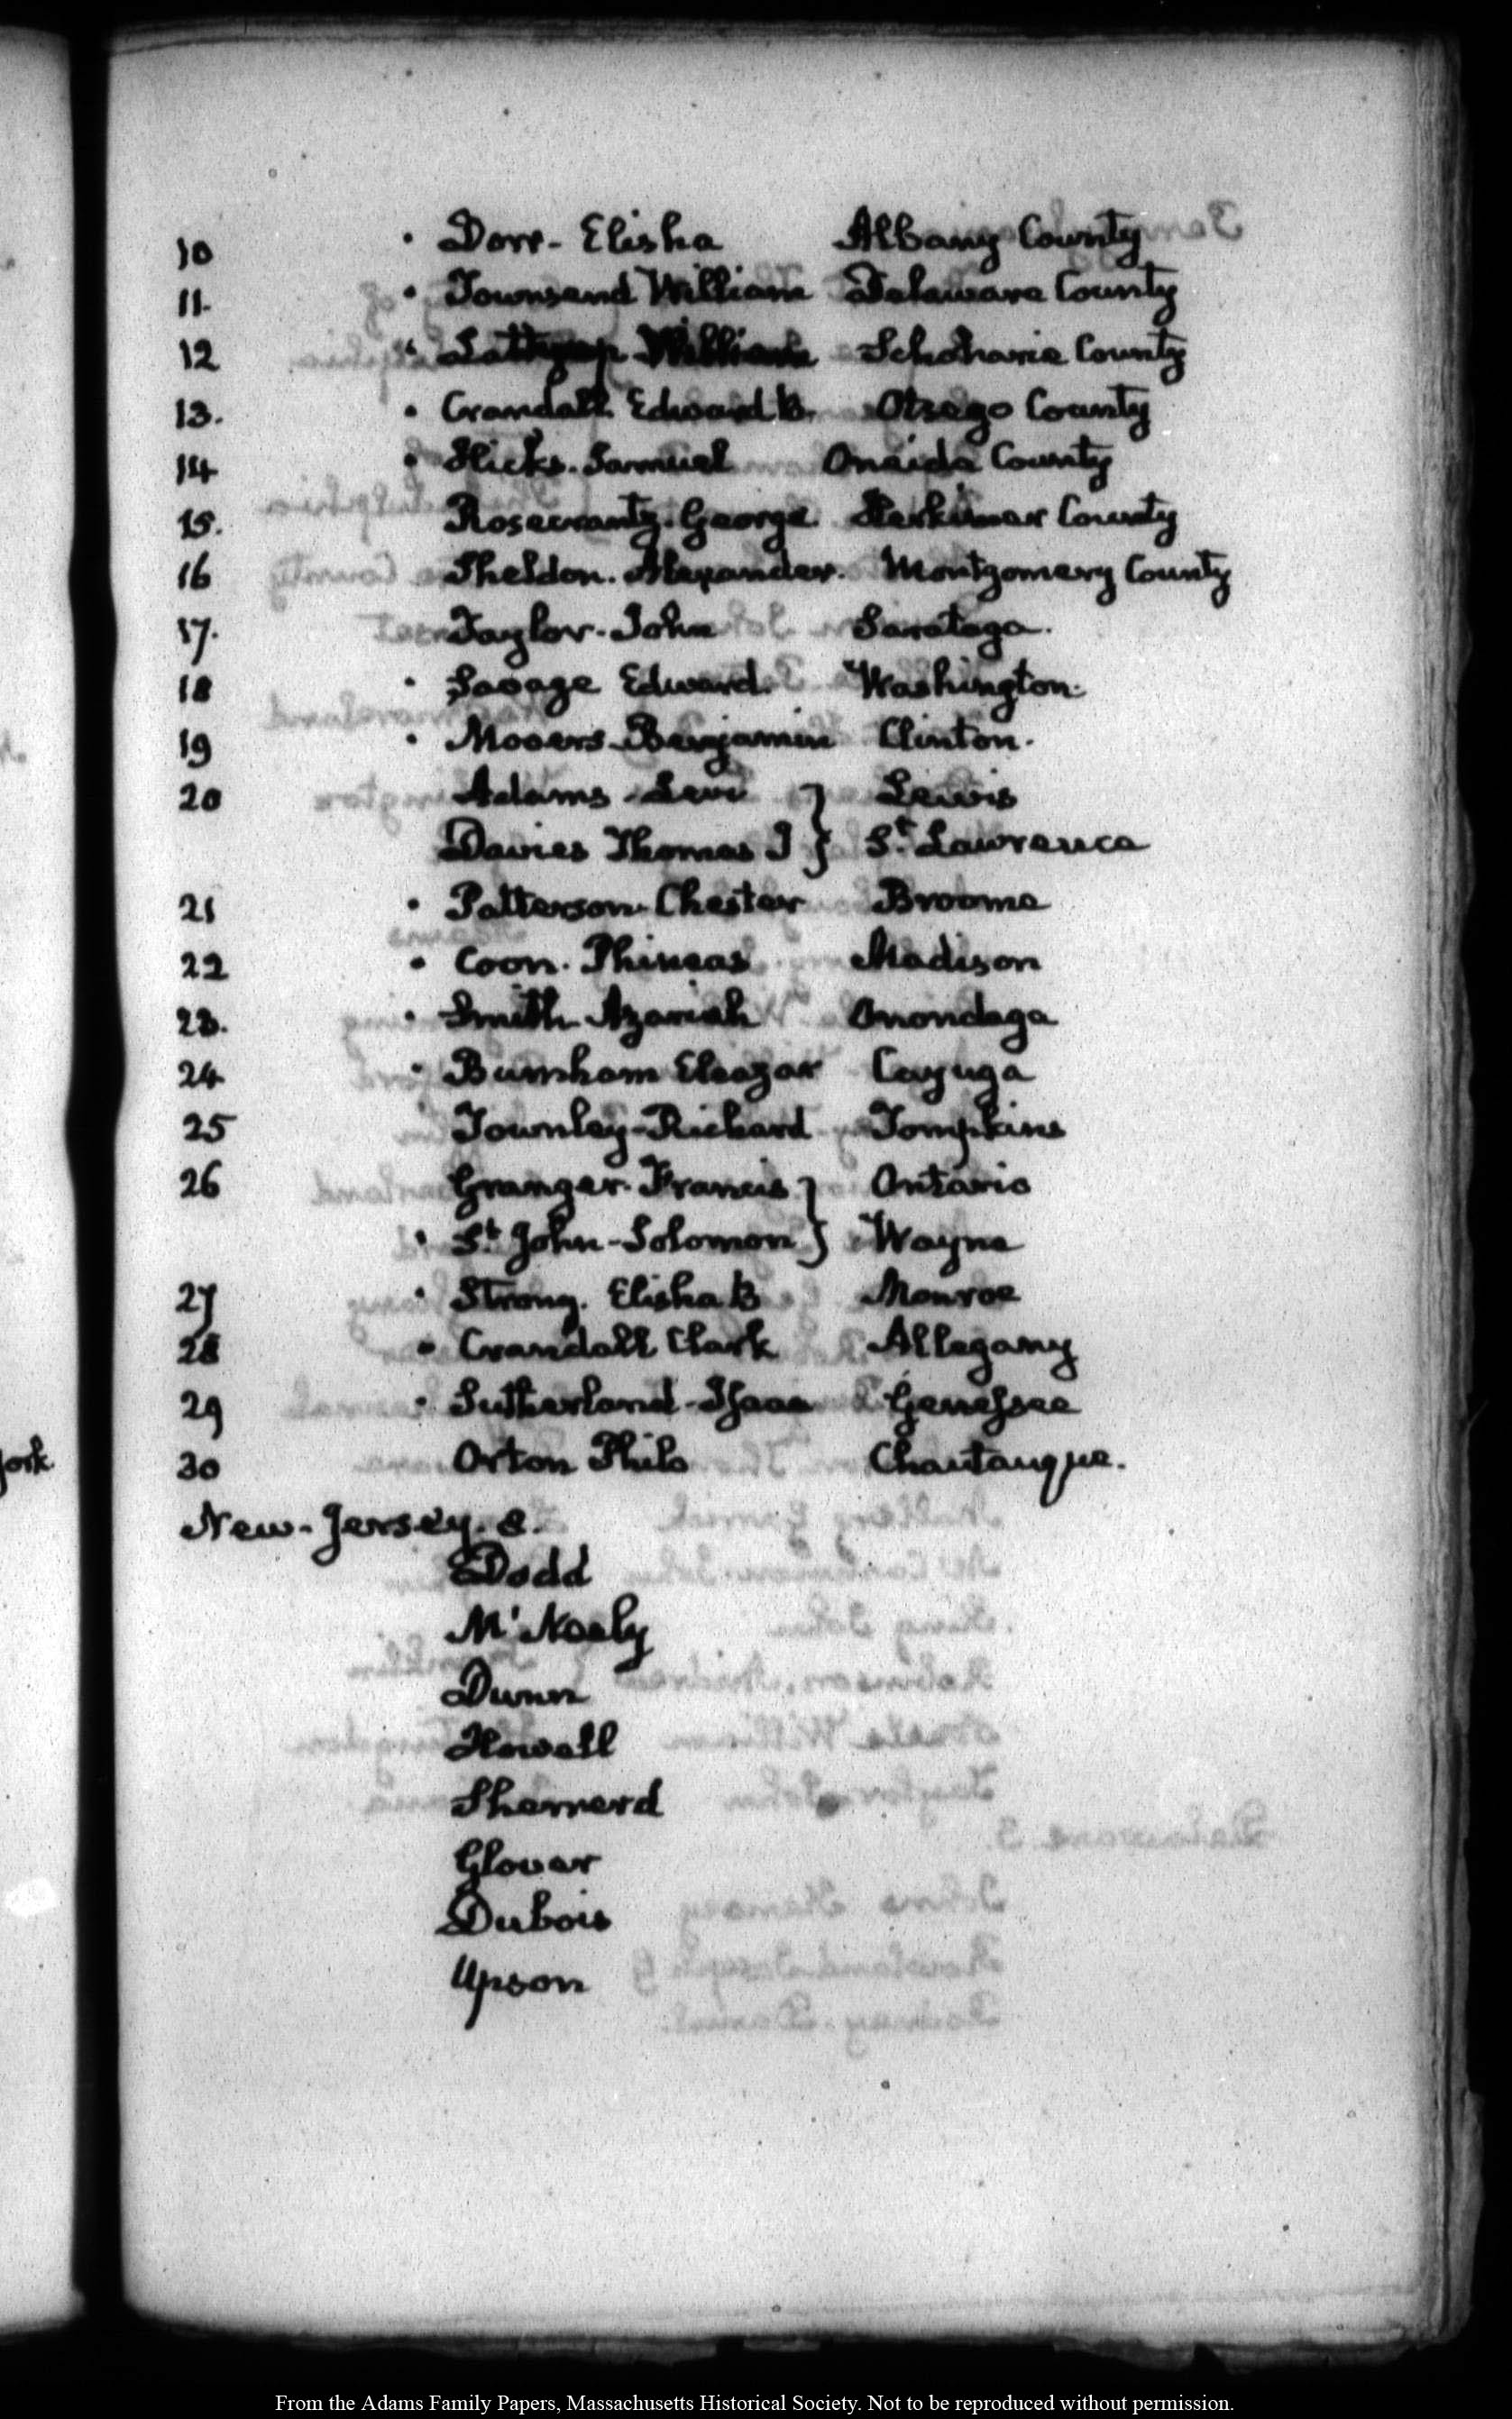 10 · Dorr - Elisha Albany County
11. · Townsend William Delaware County
12 · Lathrop William Schoharie County
13. · Crandall. Edward B. Otsego County
14 · Hicks. Samuel Oneida County
15. Rosecrantz. George. Herkimer County
16 Sheldon. Alexander. Montgomery County
17. Taylor. John Saratoga.
18 · Savage Edward. Washington.
19 · Mooers - Benjamin Clinton.
20 Adams - Levi } Lewis
Davies Thomas J } St. Lawrence
21 · Patterson. Chester Broome
22 · Coon. Phineas Madison
23. · Smith. Azariah Onondaga
24 · Burnham Eleazar Cayuga
25 · Townley - Richard Tompkins
26 Granger. Francis } Ontario
· St. John - Solomon } Wayne
27 · Strong. Elisha B Monroe
28 · Crandall Clark Allegany
29 · Sutherland - Isaac Genessee
30 Orton Philo Chautauque.
New-Jersey. 8.
Dodd
M'Neely
Dunn
Howell
Sherrerd
Glover
Dubois
Upson
ork
From the Adams Family Papers, Massachusetts Historical Society. Not to be reproduced without permission.